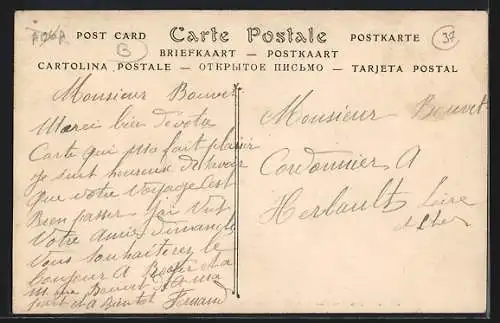 POST CARD Carte Postale POSTKARTE
B 37
BRIEFKAART — POSTKAART
CARTOLINA POSTALE — ОТКРЫТОЕ ПИСЬМО — TARJETA POSTAL
Monsieur Bouvet
Merci bien de votre
Carte qui ma fait plaisir
je suit heureuse de
que votre Voyage C'est
Bien passer j'ai Vut
Votre Dimanche
Vous Souhaiterez le
bonjour A
Mme Bouvet de ma
part et a Bientot Fernand
Monsieur Bouvet
Cordonnier A
Herbault Loire
et Cher